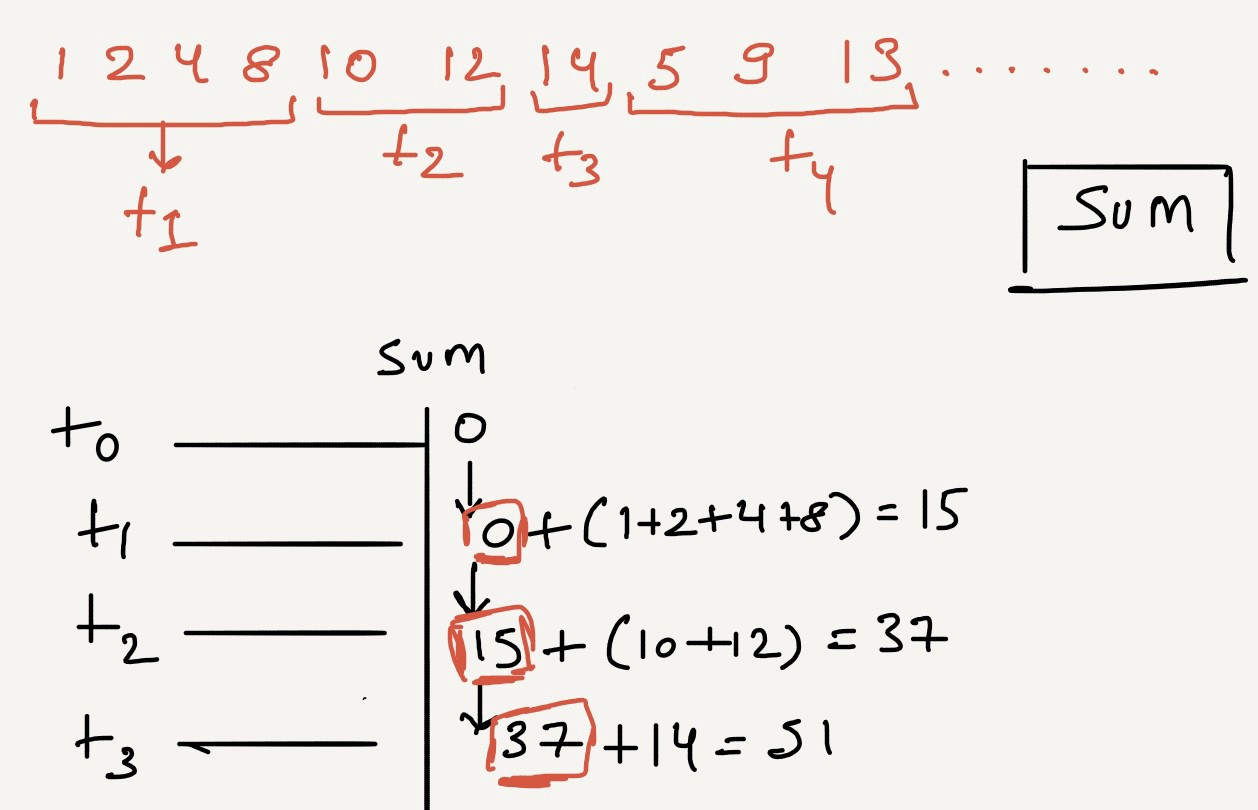 1 2 4 8 10 12 14 5 9 13 ........
t1 t2 t3 t4
SUM
Sum
t0 0
t1 0+(1+2+4+8)=15
t2 15+(10+12)=37
t3 37+14=51